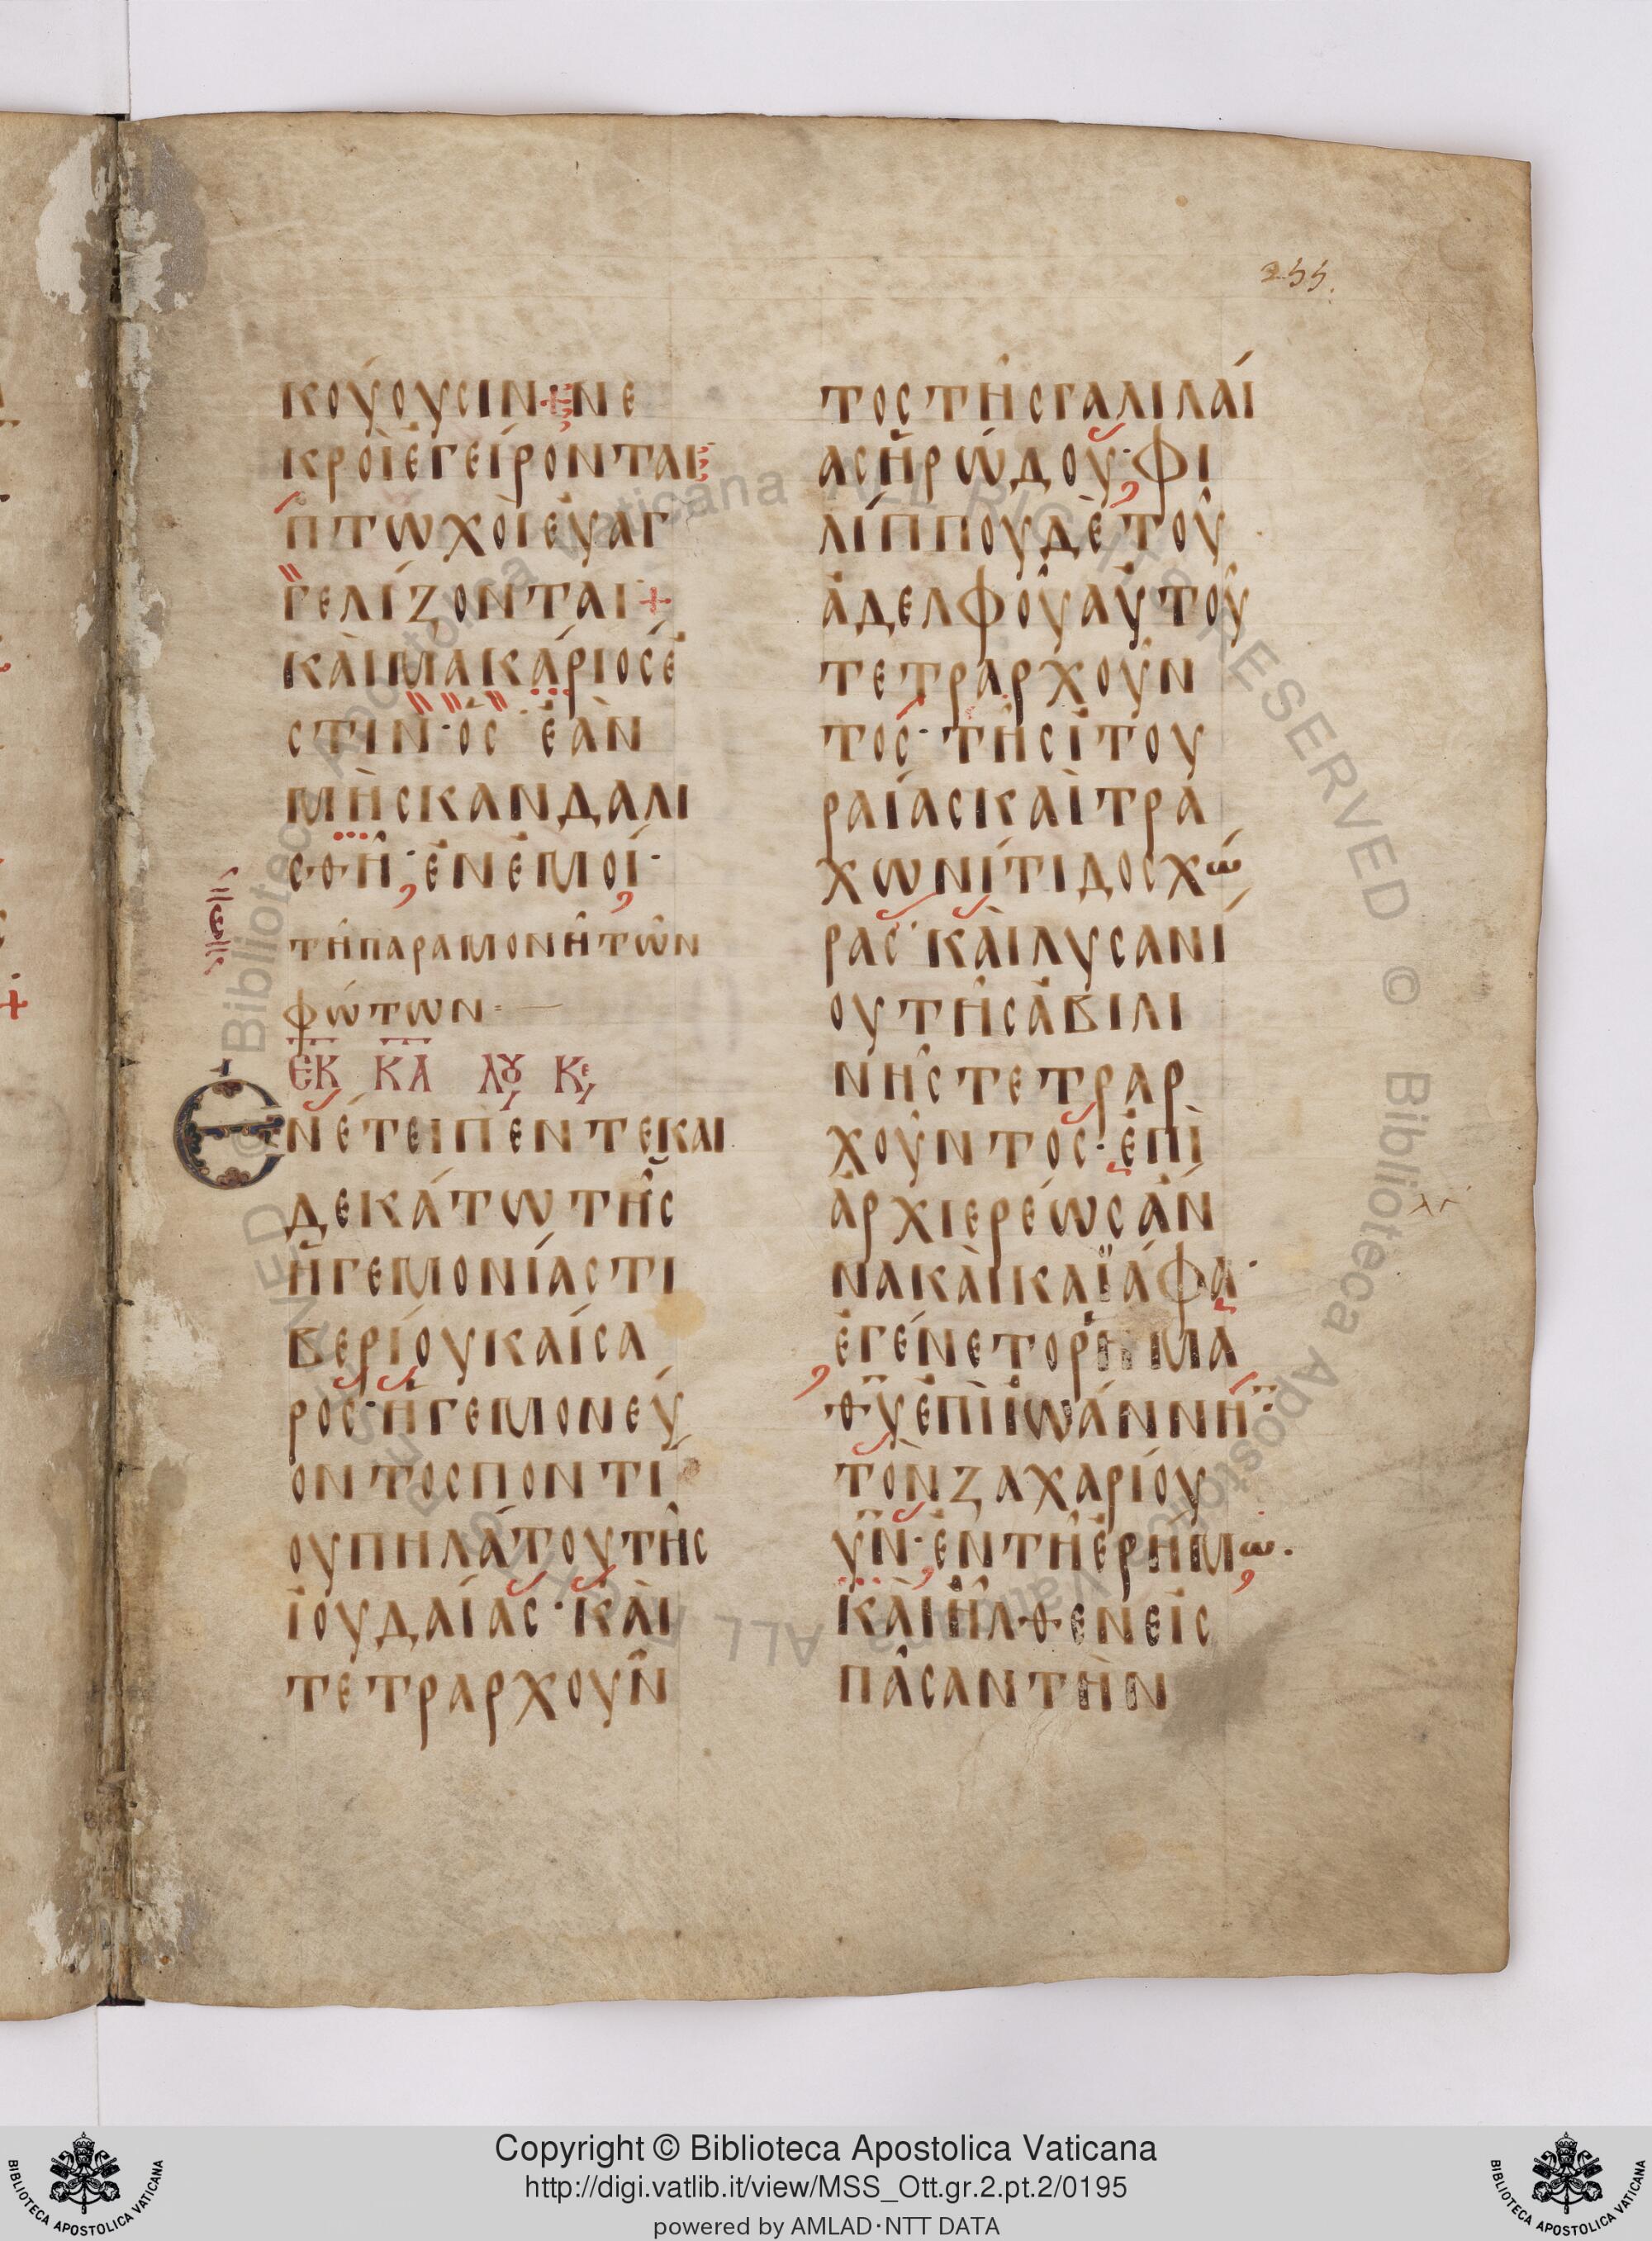 255.
κούουσιν + νε
κροὶ ἐγείρονται
πτωχοὶ εὐαγ
γελίζονται +
καὶ μακάριός ἐ
στιν· ὃς ἐὰν
μὴ σκανδαλι
σθῇ· ἐν ἐμοί·
ε
τῇ παραμονῇ τῶν
φώτων
ἐκ κα λου κε
Ἐν ἔτει πέντε και
δεκάτω τῆς
ἡγεμονίας τι
βερίου καίσα
ρος· ἡγεμονεύ
οντος ποντί
ου πηλάτου τῆς
ἰουδαίας· καὶ
τετραρχοῦν
τος τῆς γαλιλαί
ας ἡρώδου· φι
λίππου δὲ τοῦ
ἀδελφοῦ αὐτοῦ
τετραρχοῦν
τος· τῆς ἰτου
ραίας καὶ τρα
χωνίτιδος χώ
ρας· καὶ λυσανί
ου τῆς ἀβιλι
νῆς τετραρ
χοῦντος· ἐπὶ
ἀρχιερέως ἄν
να καὶ καϊάφα·
ἐγένετο ῥῆμα
θυ ἐπὶ ἰωάννη
τὸν ζαχαρίου
υν· ἐν τῇ ἐρήμω·
καὶ ἦλθεν εἰς
πᾶσαν τὴν
Copyright © Biblioteca Apostolica Vaticana
http://digi.vatlib.it/view/MSS_Ott.gr.2.pt.2/0195
powered by AMLAD·NTT DATA
BIBLIOTECA APOSTOLICA VATICANA
BIBLIOTECA APOSTOLICA VATICANA